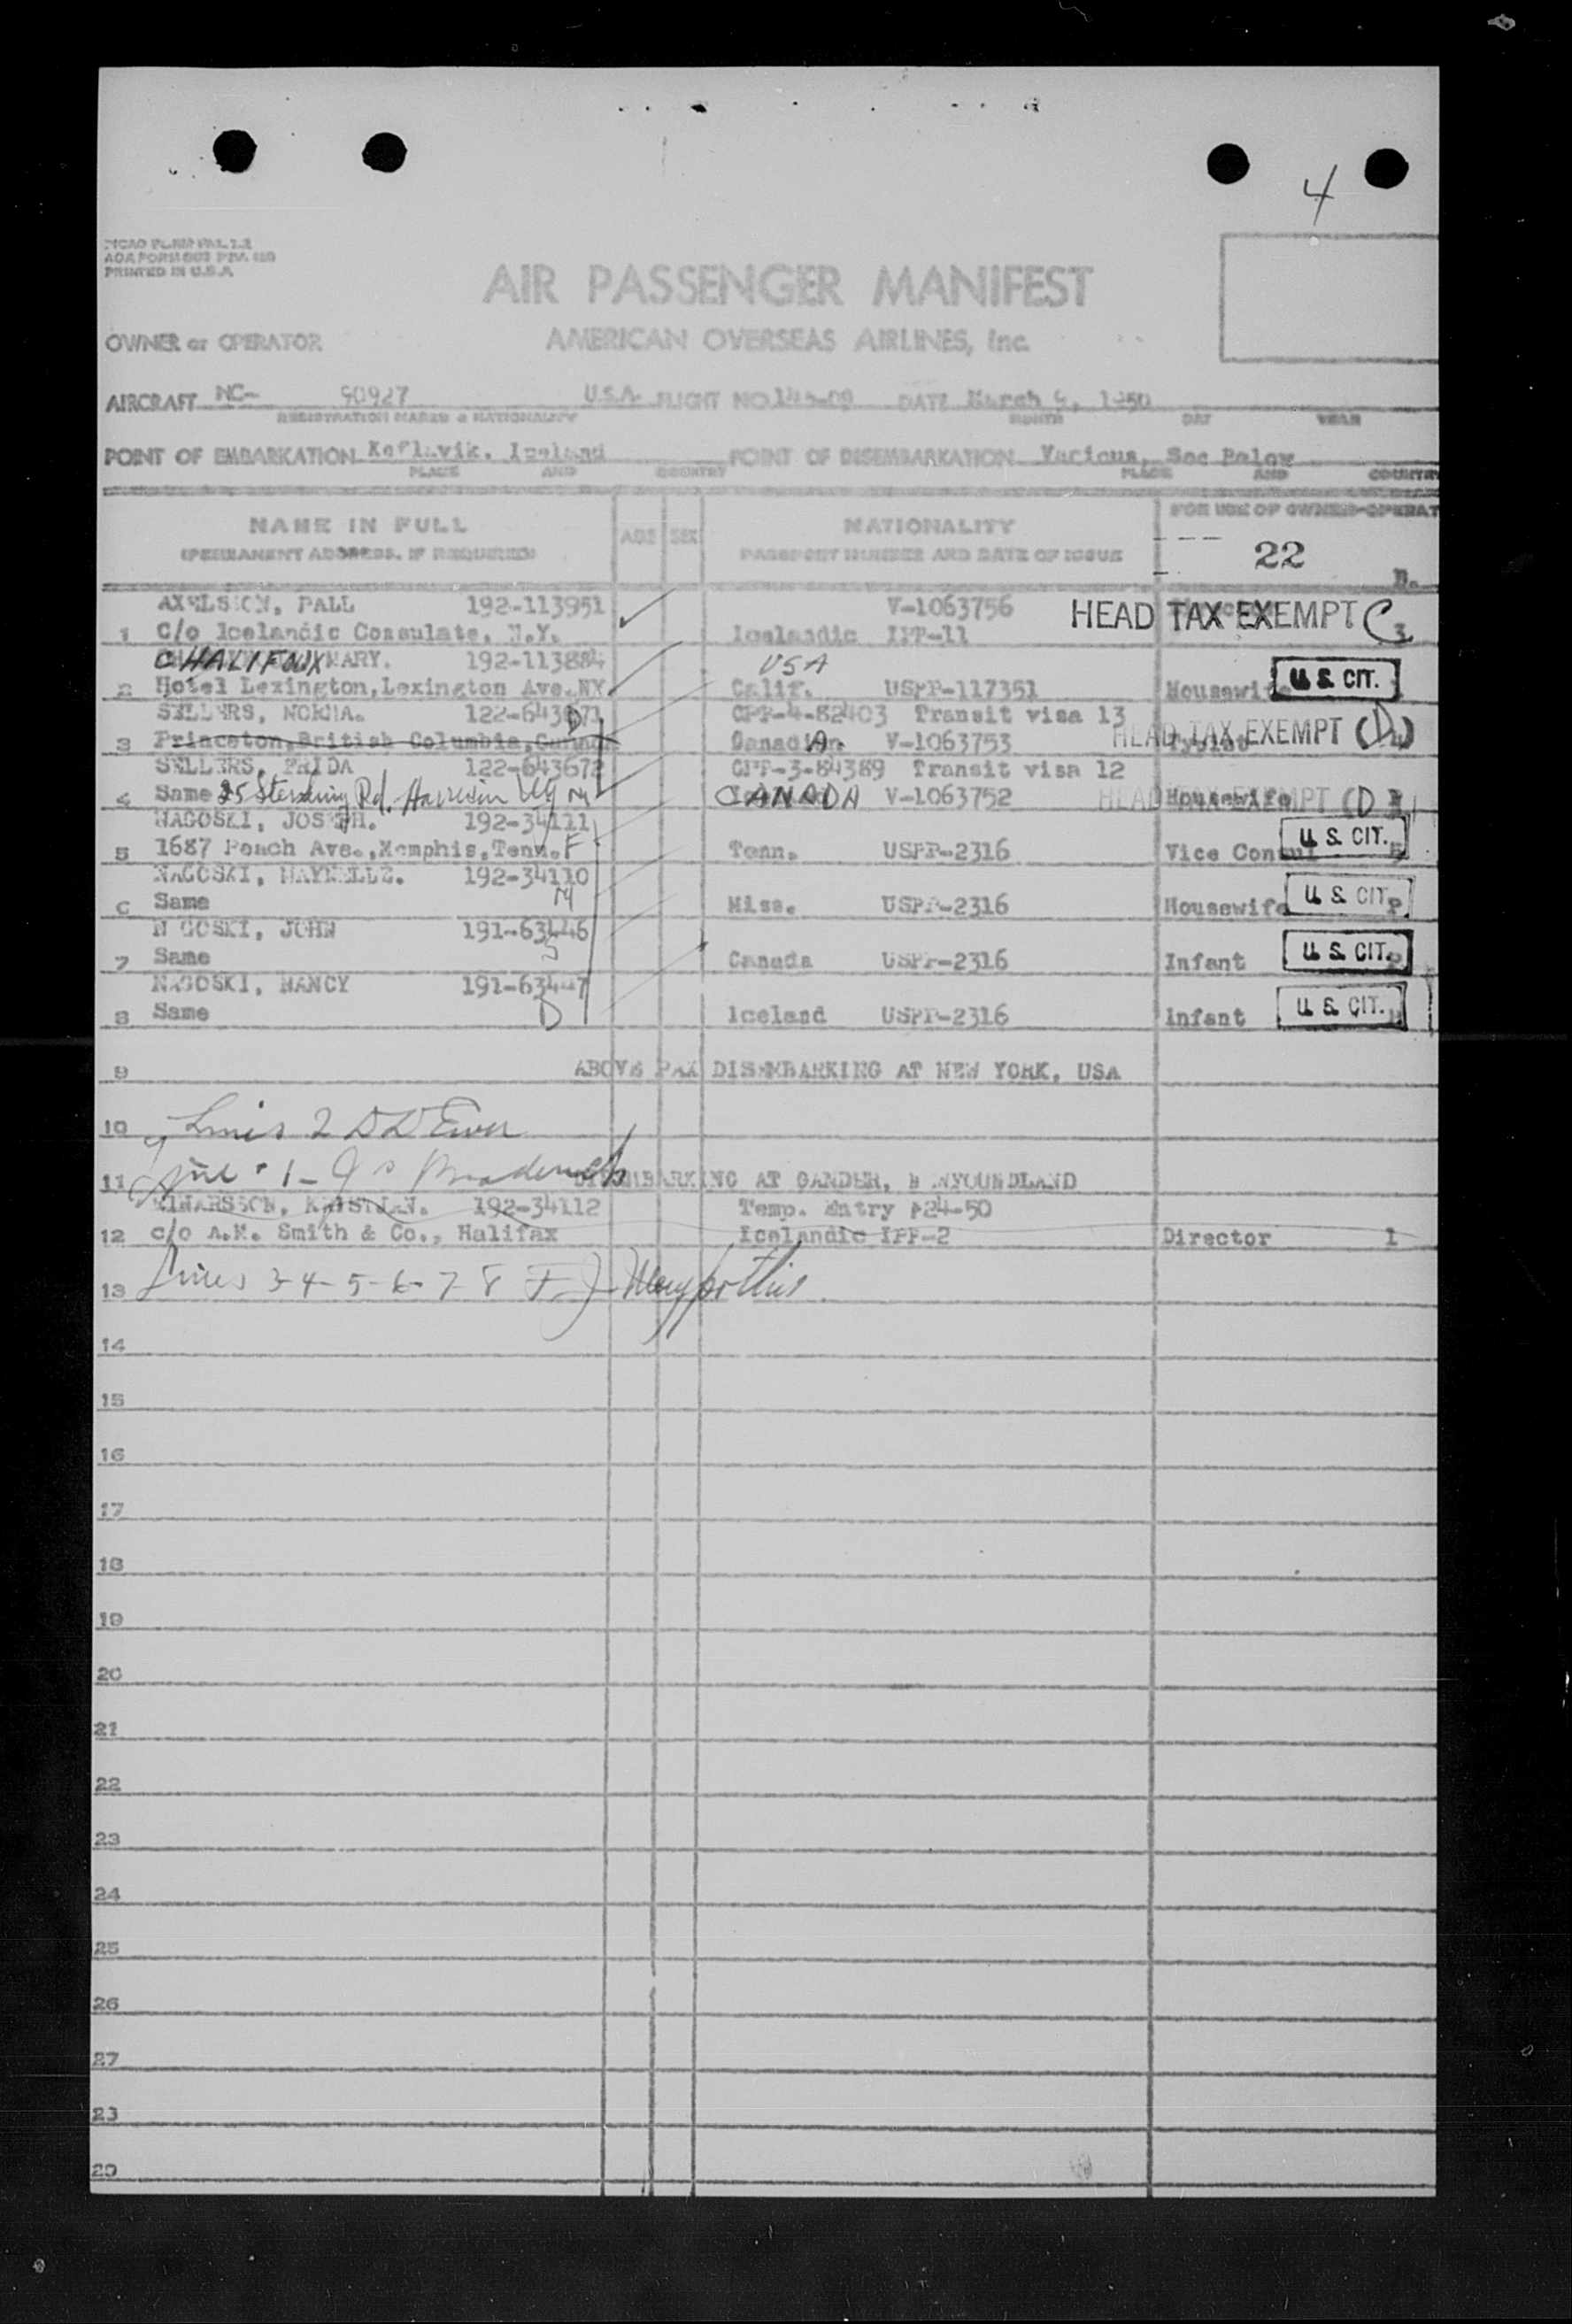 4
PRINTED IN U.S.A.
AIR PASSENGER MANIFEST
OWNER or OPERATOR AMERICAN OVERSEAS AIRLINES, Inc.
AIRCRAFT NC- 90927 U.S.A. FLIGHT NO. DATE March 1950
REGISTRATION MARKS & NATIONALITY MONTH DAY YEAR
POINT OF EMBARKATION Keflavik, Iceland POINT OF DISEMBARKATION Various, See Below
PLACE AND COUNTRY PLACE AND COUNTRY
NAME IN FULL AGE SEX NATIONALITY FOR USE OF OWNER-OPERAT
(PERMANENT ADDRESS, IF REQUIRED) PASSPORT NUMBER AND DATE OF ISSUE 22
AXELSSON, PALL 192-113951 V-1063756 HEAD TAX EXEMPT C
1 C/o Icelandic Consulate, N.Y. Icelandic IPP-11 3
CHALIFOUX MARY. 192-113884 USA
2 Hotel Lexington, Lexington Ave. NY Calif. USPP-117351 Housewife U.S. CIT.
SELLERS, NORMA. 122-643671 CPP-4-82403 Transit visa 13
3 Princeton, British Columbia, Canada Canadian V-1063753 Typist HEAD TAX EXEMPT (D)
SELLERS, FRIDA 122-643672 CPP-3-84389 Transit visa 12
4 Same 25 Rd. CANADA V-1063752 Housewife HEAD TAX EXEMPT (D)
NAGOSKI, JOSEPH. 192-34111
5 1687 Peach Ave., Memphis, Tenn. F Tenn. USPP-2316 Vice Consul U.S. CIT.
NAGOSKI, MAYNELLE. 192-34110
6 Same M Miss. USPP-2316 Housewife U.S. CIT.
N GOSKI, JOHN 191-63446
7 Same S Canada USPP-2316 Infant U.S. CIT.
NAGOSKI, NANCY 191-63447
8 Same D Iceland USPP-2316 Infant U.S. CIT.
9 ABOVE PAX DISEMBARKING AT NEW YORK, USA
10 Lines 2
11 Line 1 - DISEMBARKING AT GANDER, NEWFOUNDLAND
EINARSSON, KRISTJAN. 192-34112 Temp. Entry 24-50
12 c/o A.M. Smith & Co., Halifax Icelandic IPP-2 Director 1
13 Lines 3-4-5-6-7-8
14
15
16
17
18
19
20
21
22
23
24
25
26
27